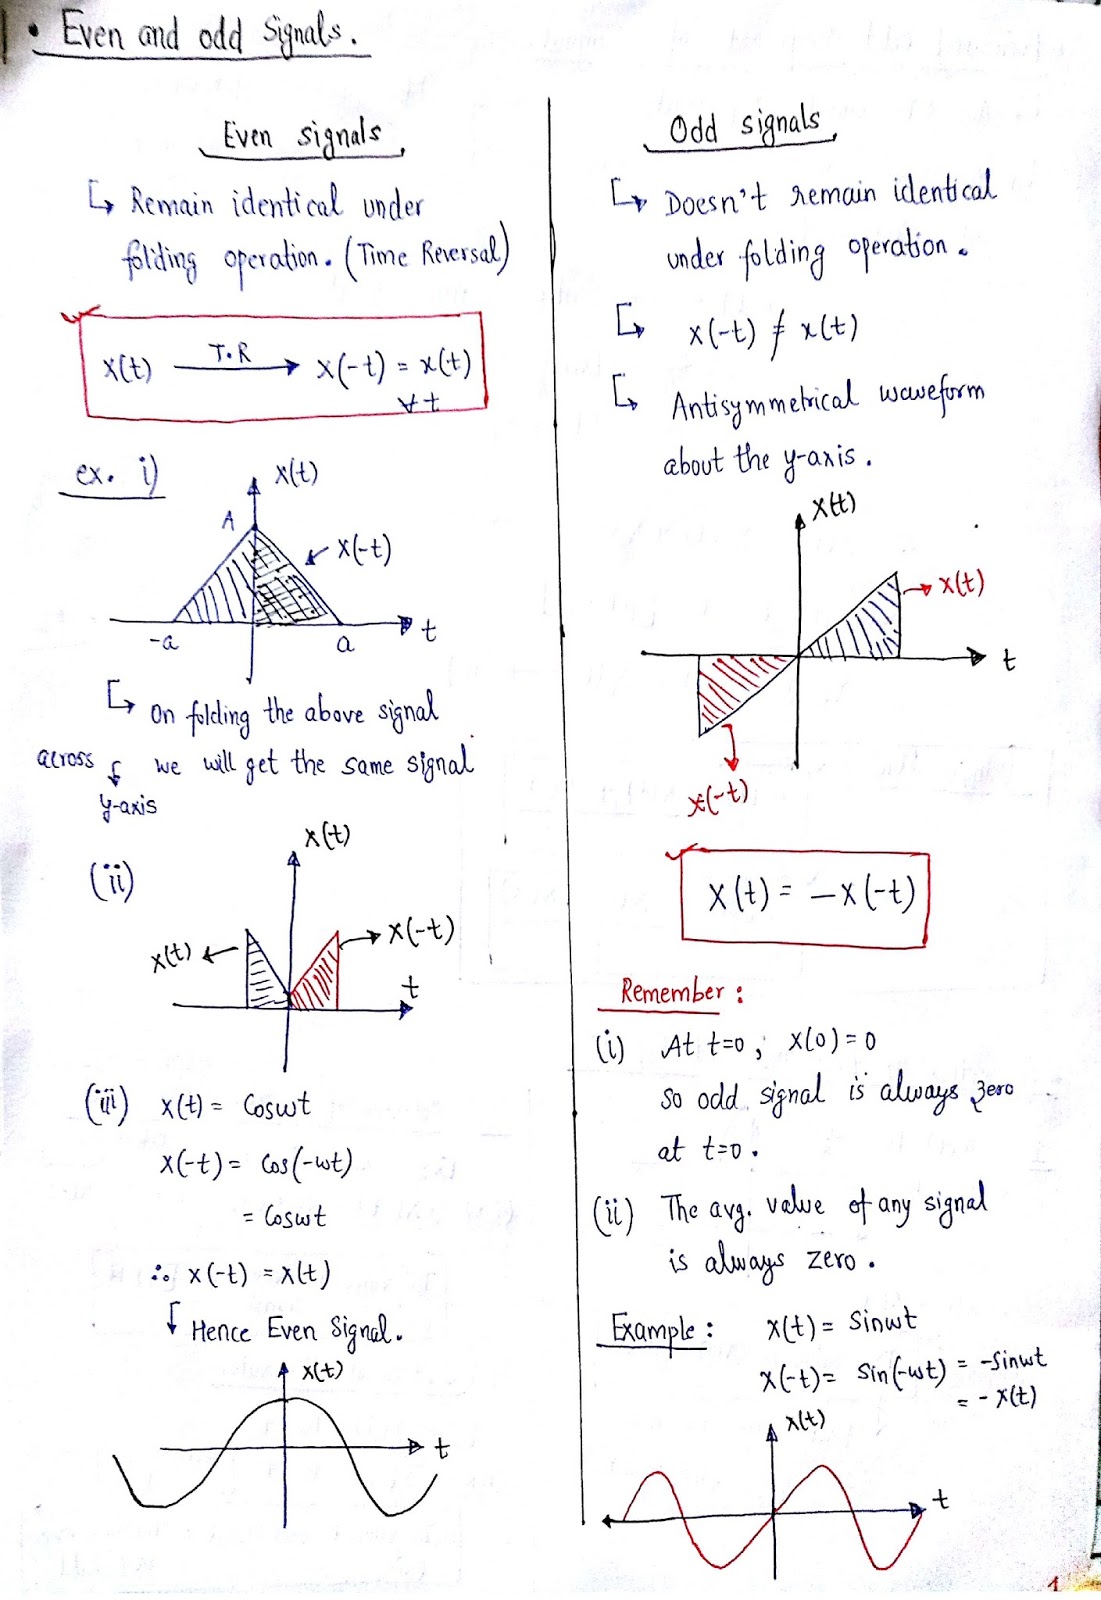 • Even and odd Signals.
Even signals
↳ Remain identical under
folding operation. (Time Reversal)
x(t) —T.R→ x(-t) = x(t)
∀ t
ex. i)
x(t)
A
x(-t)
-a
a
t
↳ On folding the above signal
across we will get the same signal
y-axis
(ii)
x(t)
x(t)
x(-t)
t
(iii) x(t) = Coswt
x(-t) = Cos(-wt)
= Coswt
∴ x(-t) = x(t)
Hence Even Signal.
x(t)
t
Odd signals
↳ Doesn't remain identical
under folding operation.
↳ x(-t) ≠ x(t)
↳ Antisymmetrical waveform
about the y-axis.
x(t)
x(t)
t
x(-t)
x(t) = -x(-t)
Remember :
(i) At t=0, x(0) = 0
so odd signal is always zero
at t=0.
(ii) The avg. value of any signal
is always zero.
Example : x(t) = Sinwt
x(-t) = Sin(-wt) = -sinwt
= - x(t)
x(t)
t
1